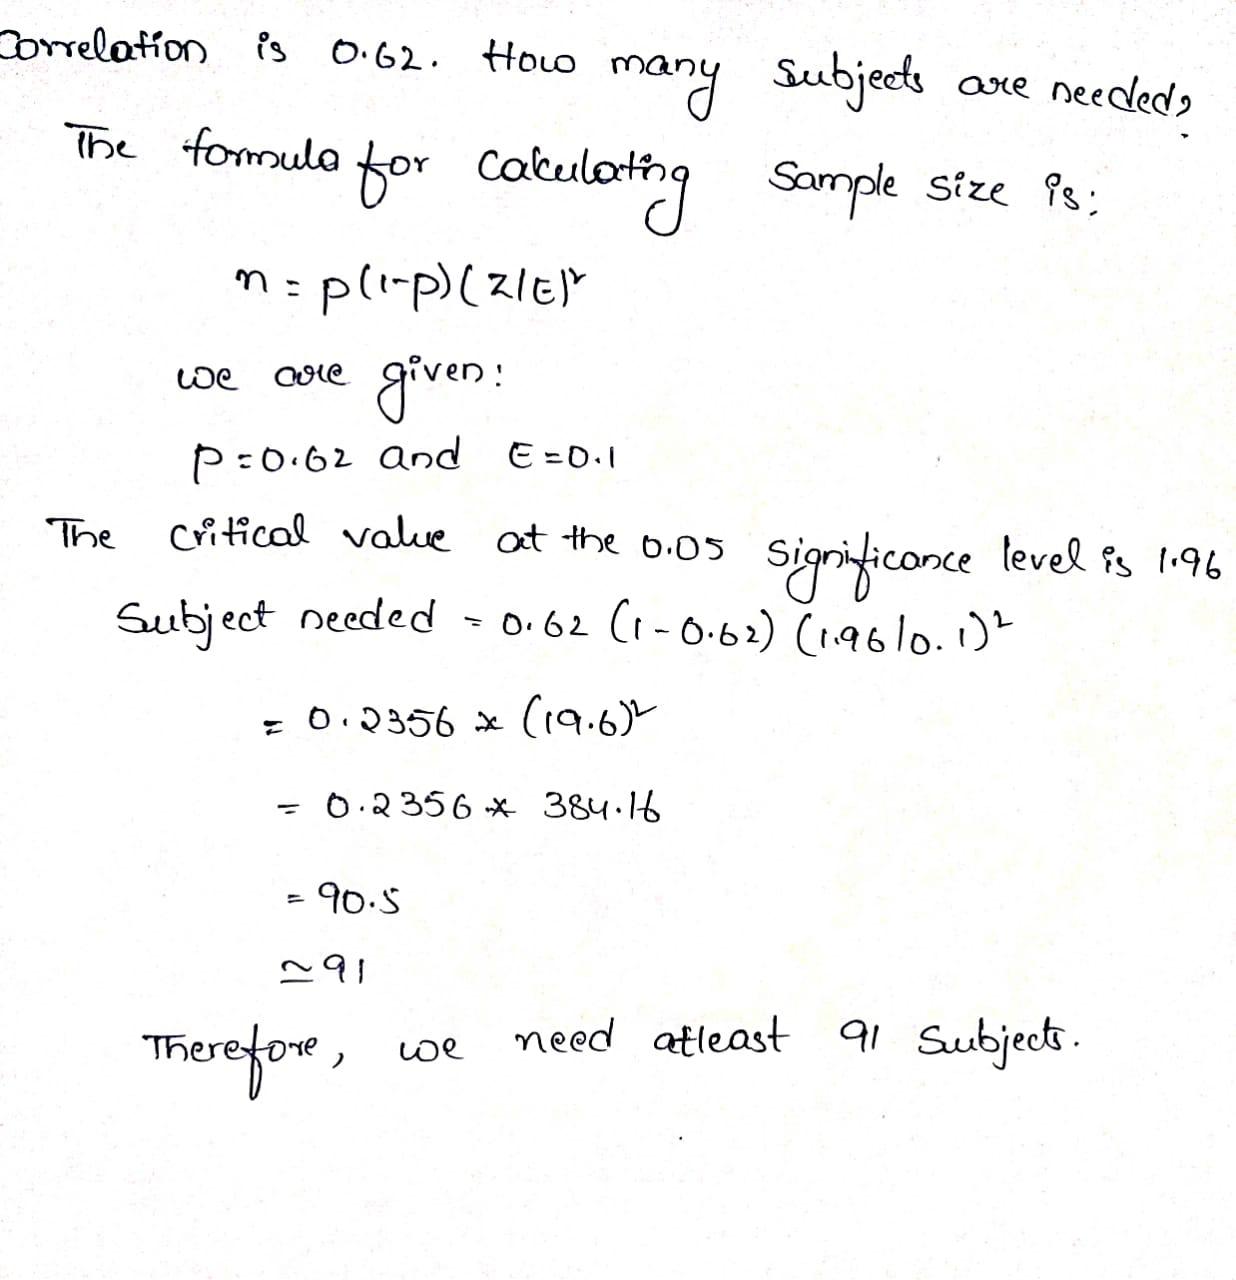 Correlation is 0.62. How many subjects are needed?
The formula for calculating sample size is:
n = p(1-p)(Z/E)²
we are given:
p=0.62 and E=0.1
The critical value at the 0.05 significance level is 1.96
Subject needed = 0.62 (1-0.62) (1.96/0.1)²
= 0.2356 * (19.6)²
= 0.2356 * 384.16
= 90.5
≃ 91
Therefore, we need atleast 91 Subjects.